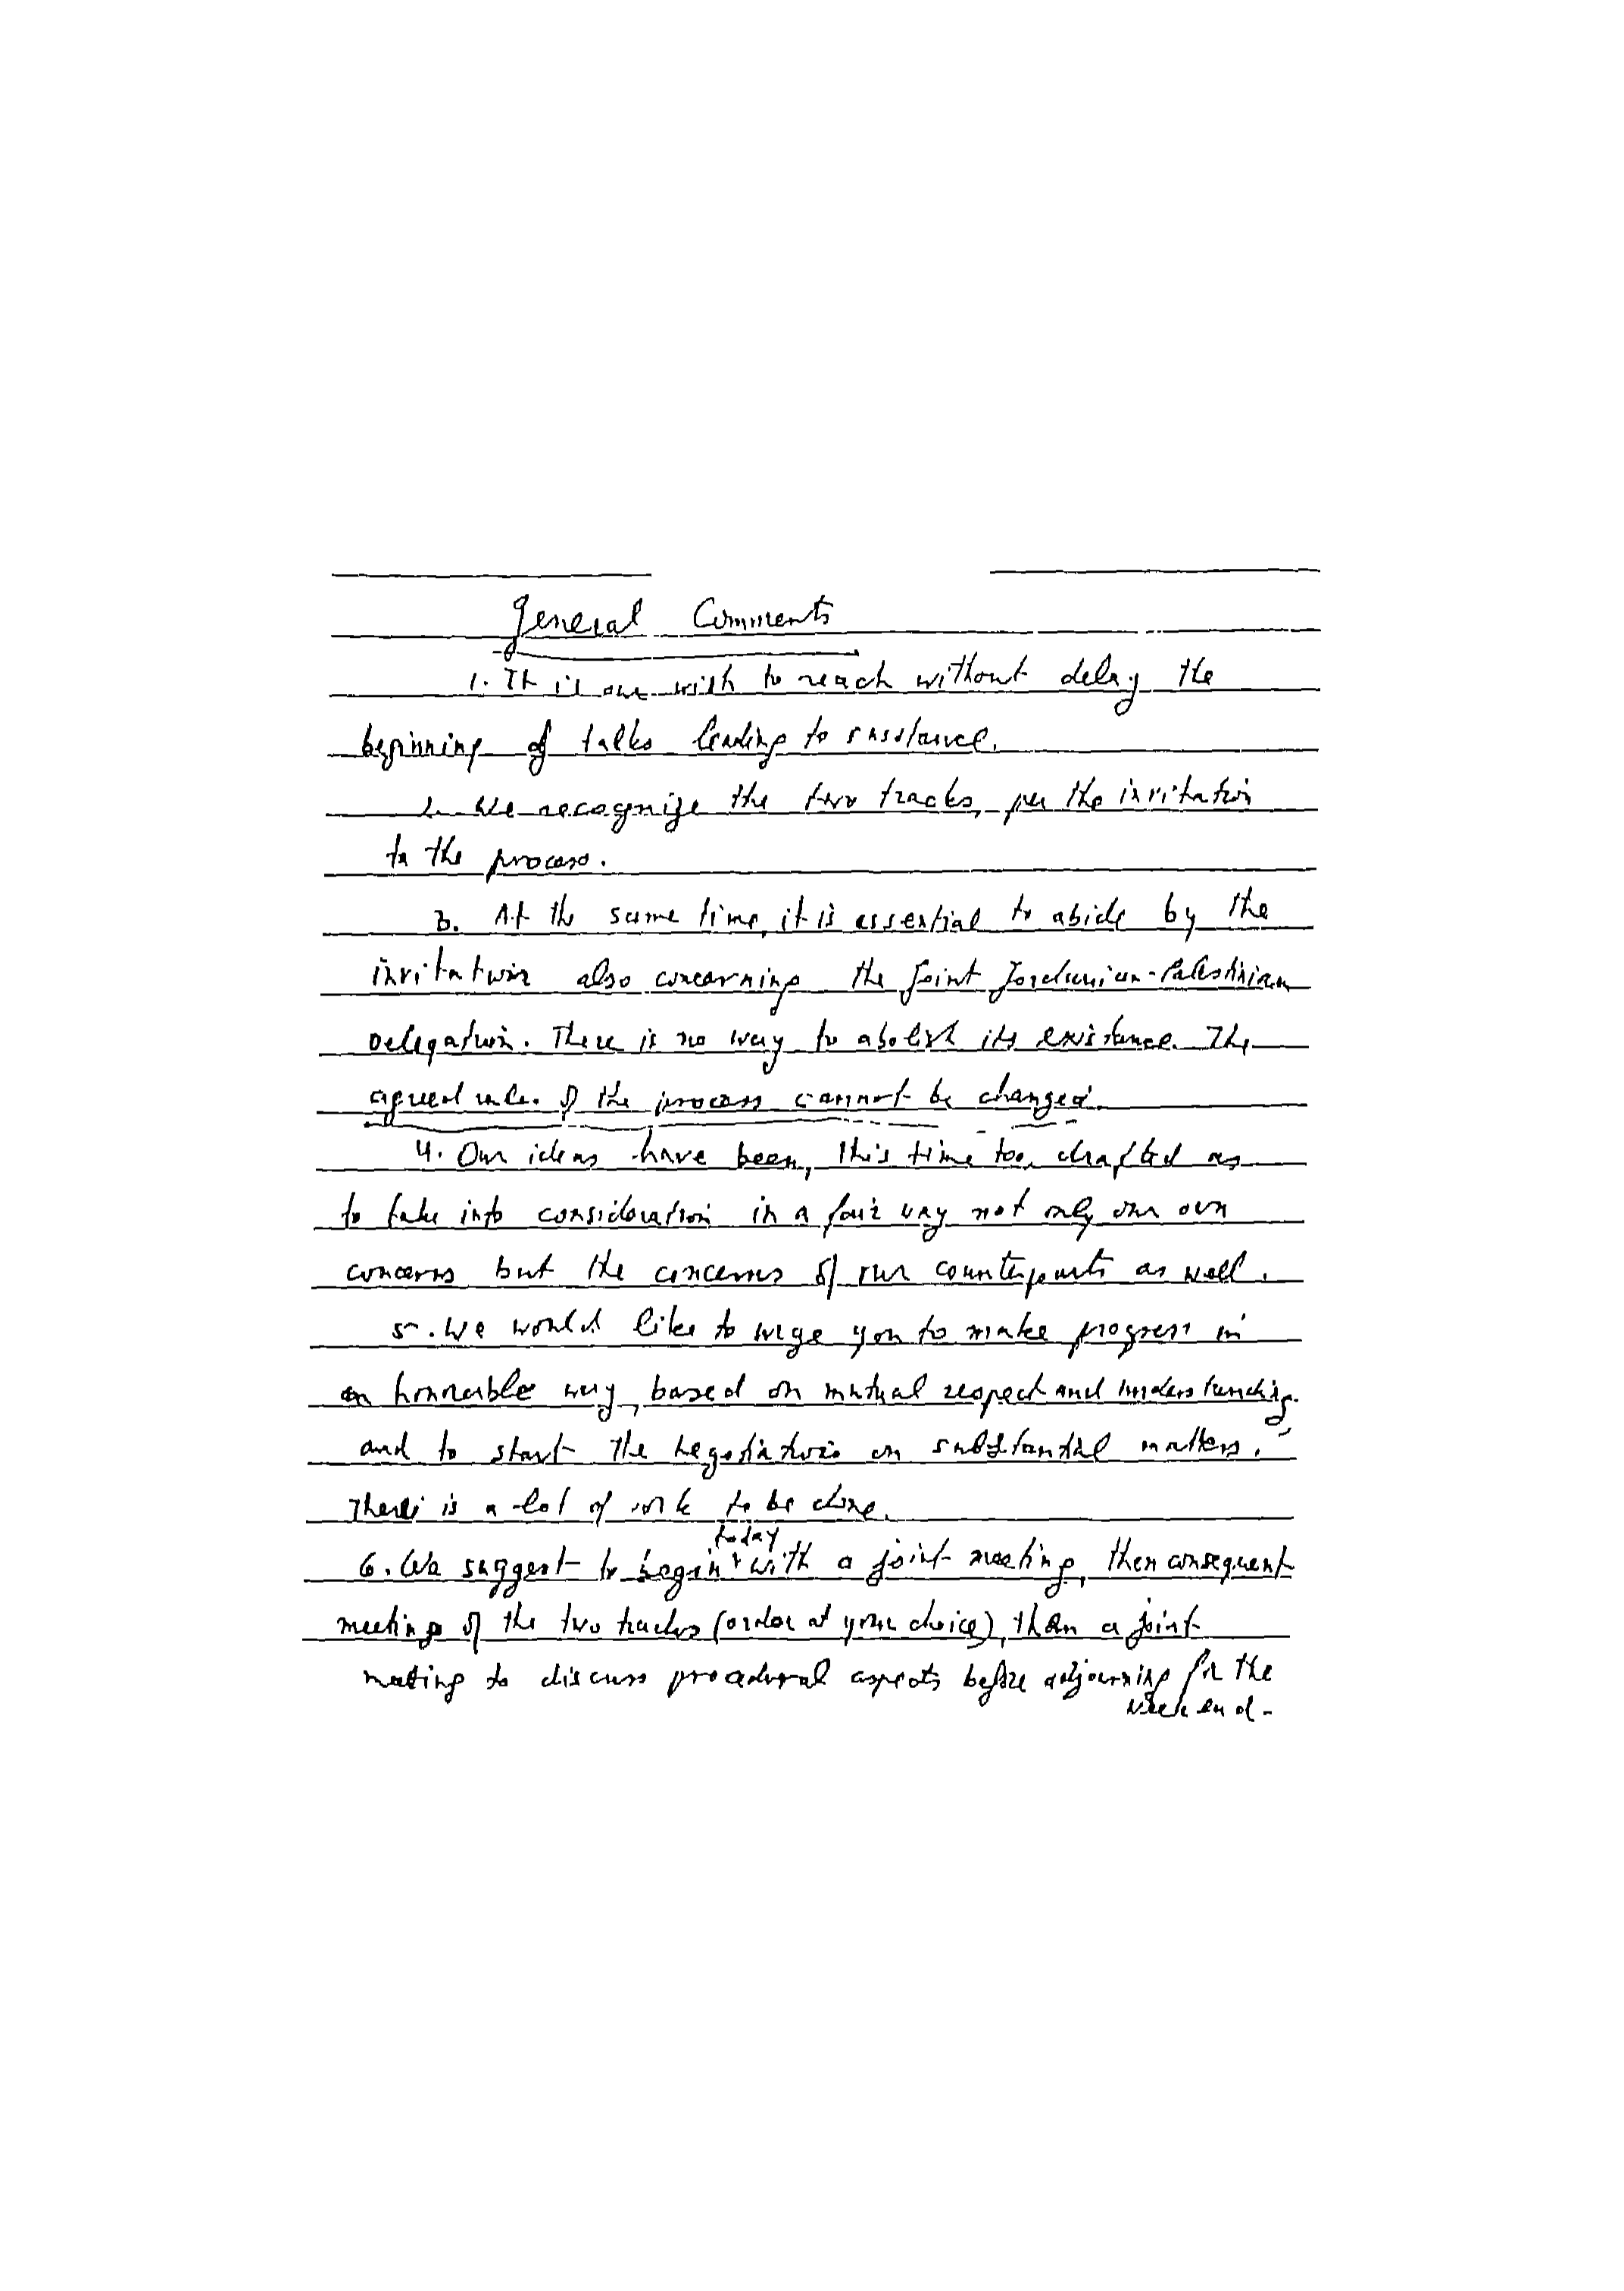 General Comments
1. It is our wish to reach without delay the
beginning of talks leading to substance.
2. We recognize the two tracks, per the invitation
to the process.
3. At the same time, it is essential to abide by the
invitation also concerning the joint Jordanian-Palestinian
Delegation. There is no way to abolish its existence. The
agreed rules of the process cannot be changed.
4. Our ideas have been, this time too, drafted as
to take into consideration in a fair way not only our own
concerns but the concerns of our counterparts as well.
5. We would like to urge you to make progress in
an honorable way, based on mutual respect and understanding.
and to start the negotiations on substantial matters.
There is a lot of work to be done.
today
6. We suggest to begin with a joint meeting, then consequent
meetings of the two tracks (order at your choice), then a joint
meeting to discuss procedural aspects before adjourning for the
weekend.